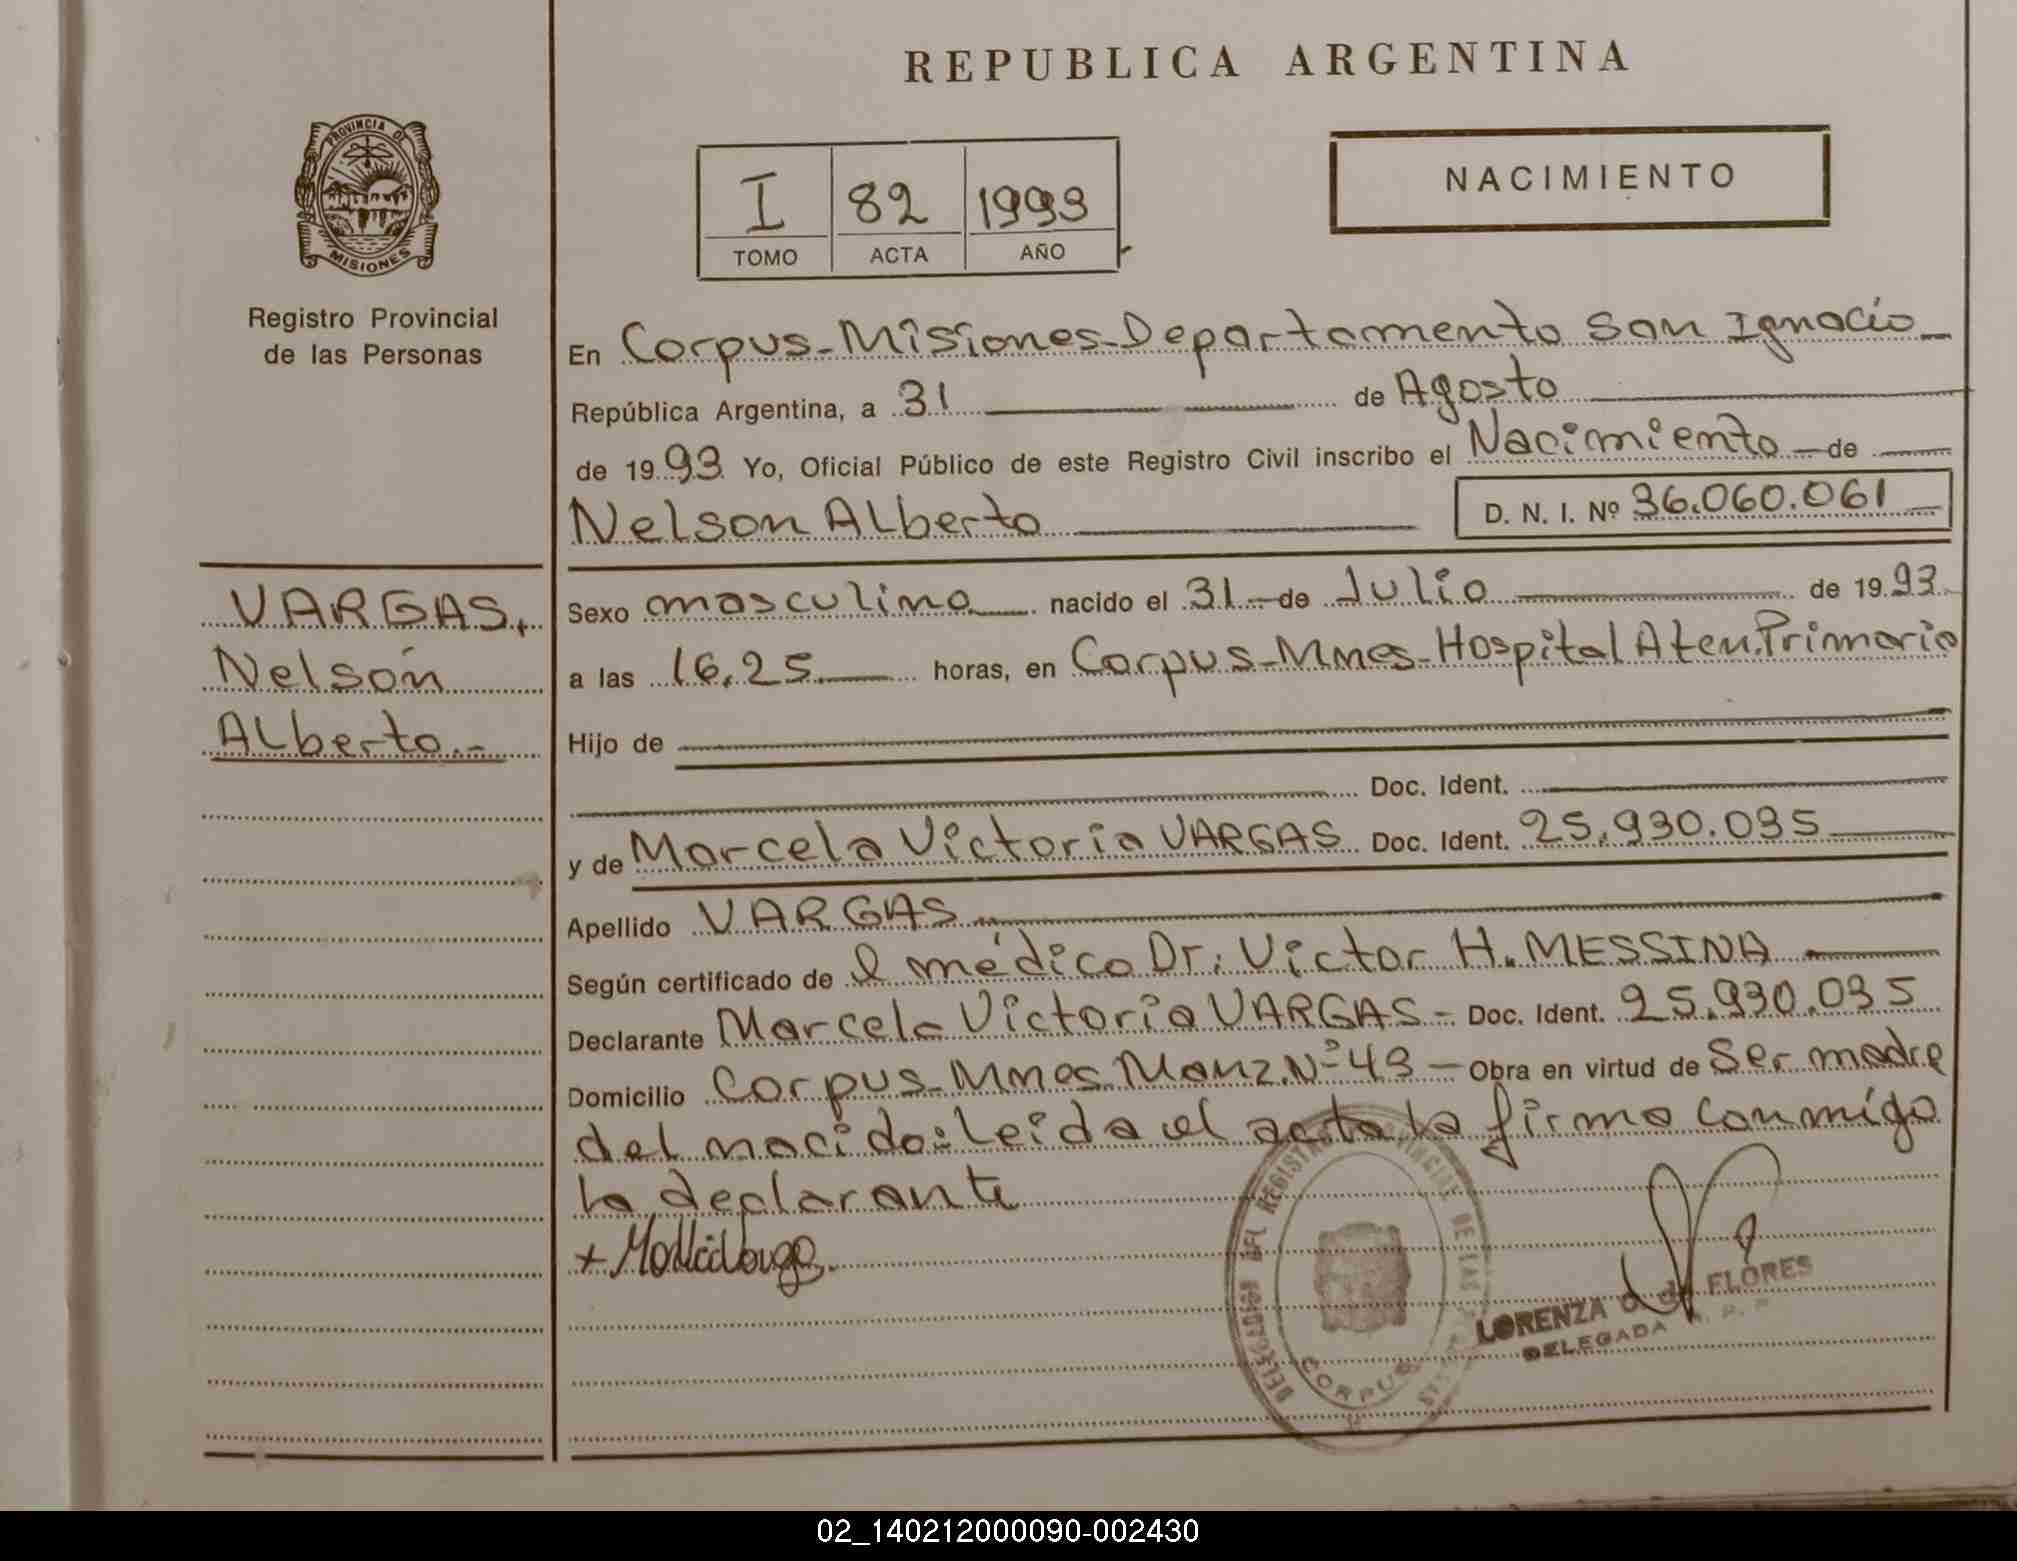 REPUBLICA ARGENTINA
PROVINCIA D
MISIONES
Registro Provincial
de las Personas
I 82 1993
TOMO ACTA AÑO
NACIMIENTO
En Corpus-Misiones-Departamento San Ignacio
República Argentina, a 31 de Agosto
de 1993 Yo, Oficial Público de este Registro Civil inscribo el Nacimiento de
Nelson Alberto D. N. I. Nº 36.060.061
VARGAS,
Nelson
Alberto.-
Sexo masculino nacido el 31 de Julio de 1993
a las 16,25 horas, en Corpus-Mnes-Hospital Aten.Primaria
Hijo de
Doc. Ident.
y de Marcela Victoria VARGAS Doc. Ident. 25.930.035
Apellido VARGAS
Según certificado de l médico Dr. Victor H. MESSINA
Declarante Marcela Victoria VARGAS- Doc. Ident. 25.930.035
Domicilio Corpus-Mnes Manz.Nº 43 - Obra en virtud de Ser madre
del nacido: Leida el acta la firma conmigo
la declarante
DELEGACION DEL REGISTRO PROVINCIAL DE LAS
CORPUS
LORENZA FLORES
DELEGADA
02_140212000090-002430